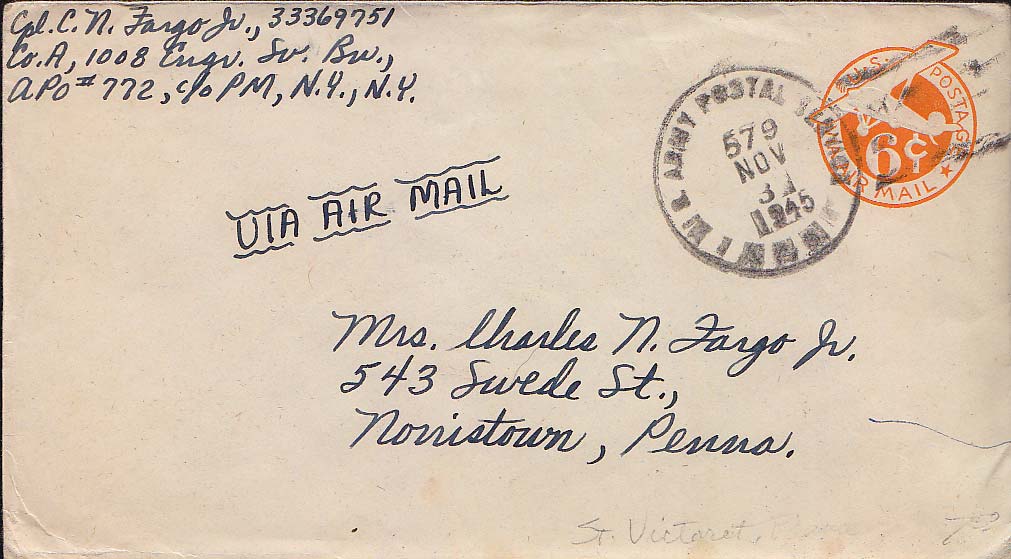 Cpl. C. N. Fargo Jr., 33369751
Co. A, 1008 Engr. Sv. Bn.,
APO # 772, c/o PM, N.Y., N.Y.
U.S. POSTAGE
6¢
AIR MAIL
U.S. ARMY POSTAL SERVICE
579
NOV
3
1945
VIA AIR MAIL
Mrs. Charles N. Fargo Jr.
543 Swede St.,
Norristown, Penna.
St. Victoret,
7⁵⁰